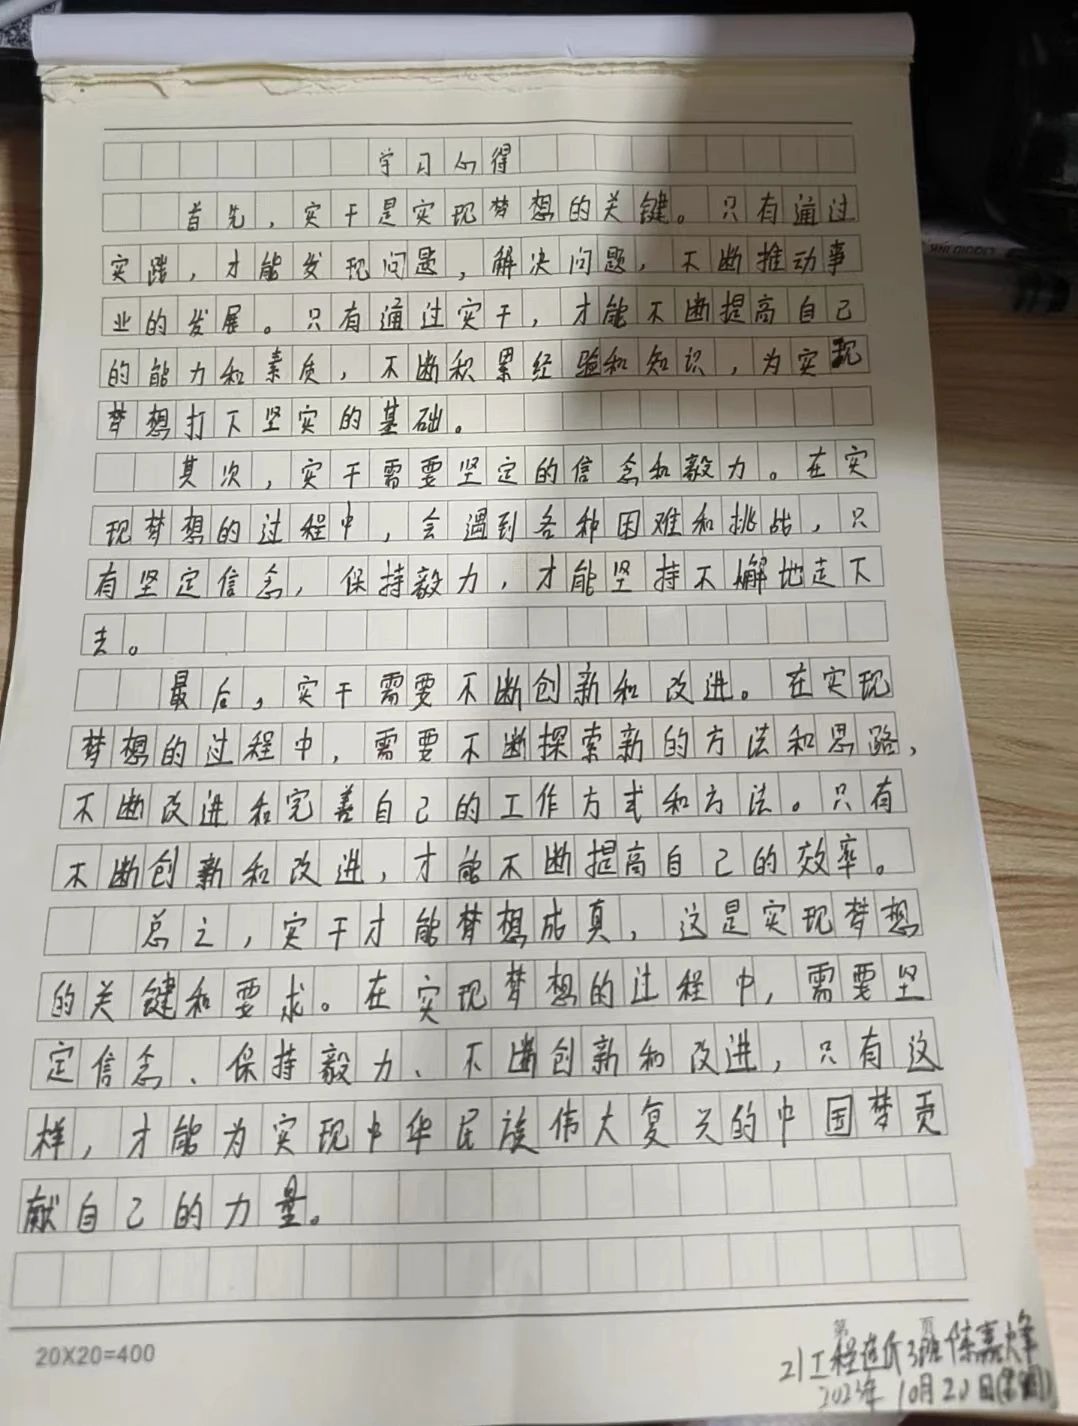 学习心得
首先，实干是实现梦想的关键。只有通过
实践，才能发现问题，解决问题，不断推动事
业的发展。只有通过实干，才能不断提高自己
的能力和素质，不断积累经验和知识，为实现
梦想打下坚实的基础。
其次，实干需要坚定的信念和毅力。在实
现梦想的过程中，会遇到各种困难和挑战，只
有坚定信念，保持毅力，才能坚持不懈地走下
去。
最后，实干需要不断创新和改进。在实现
梦想的过程中，需要不断探索新的方法和思路，
不断改进和完善自己的工作方式和方法。只有
不断创新和改进，才能不断提高自己的效率。
总之，实干才能梦想成真，这是实现梦想
的关键和要求。在实现梦想的过程中，需要坚
定信念、保持毅力、不断创新和改进，只有这
样，才能为实现中华民族伟大复兴的中国梦贡
献自己的力量。
20X20=400
第 页
21工程造价3班陈嘉烽
2023年10月20日